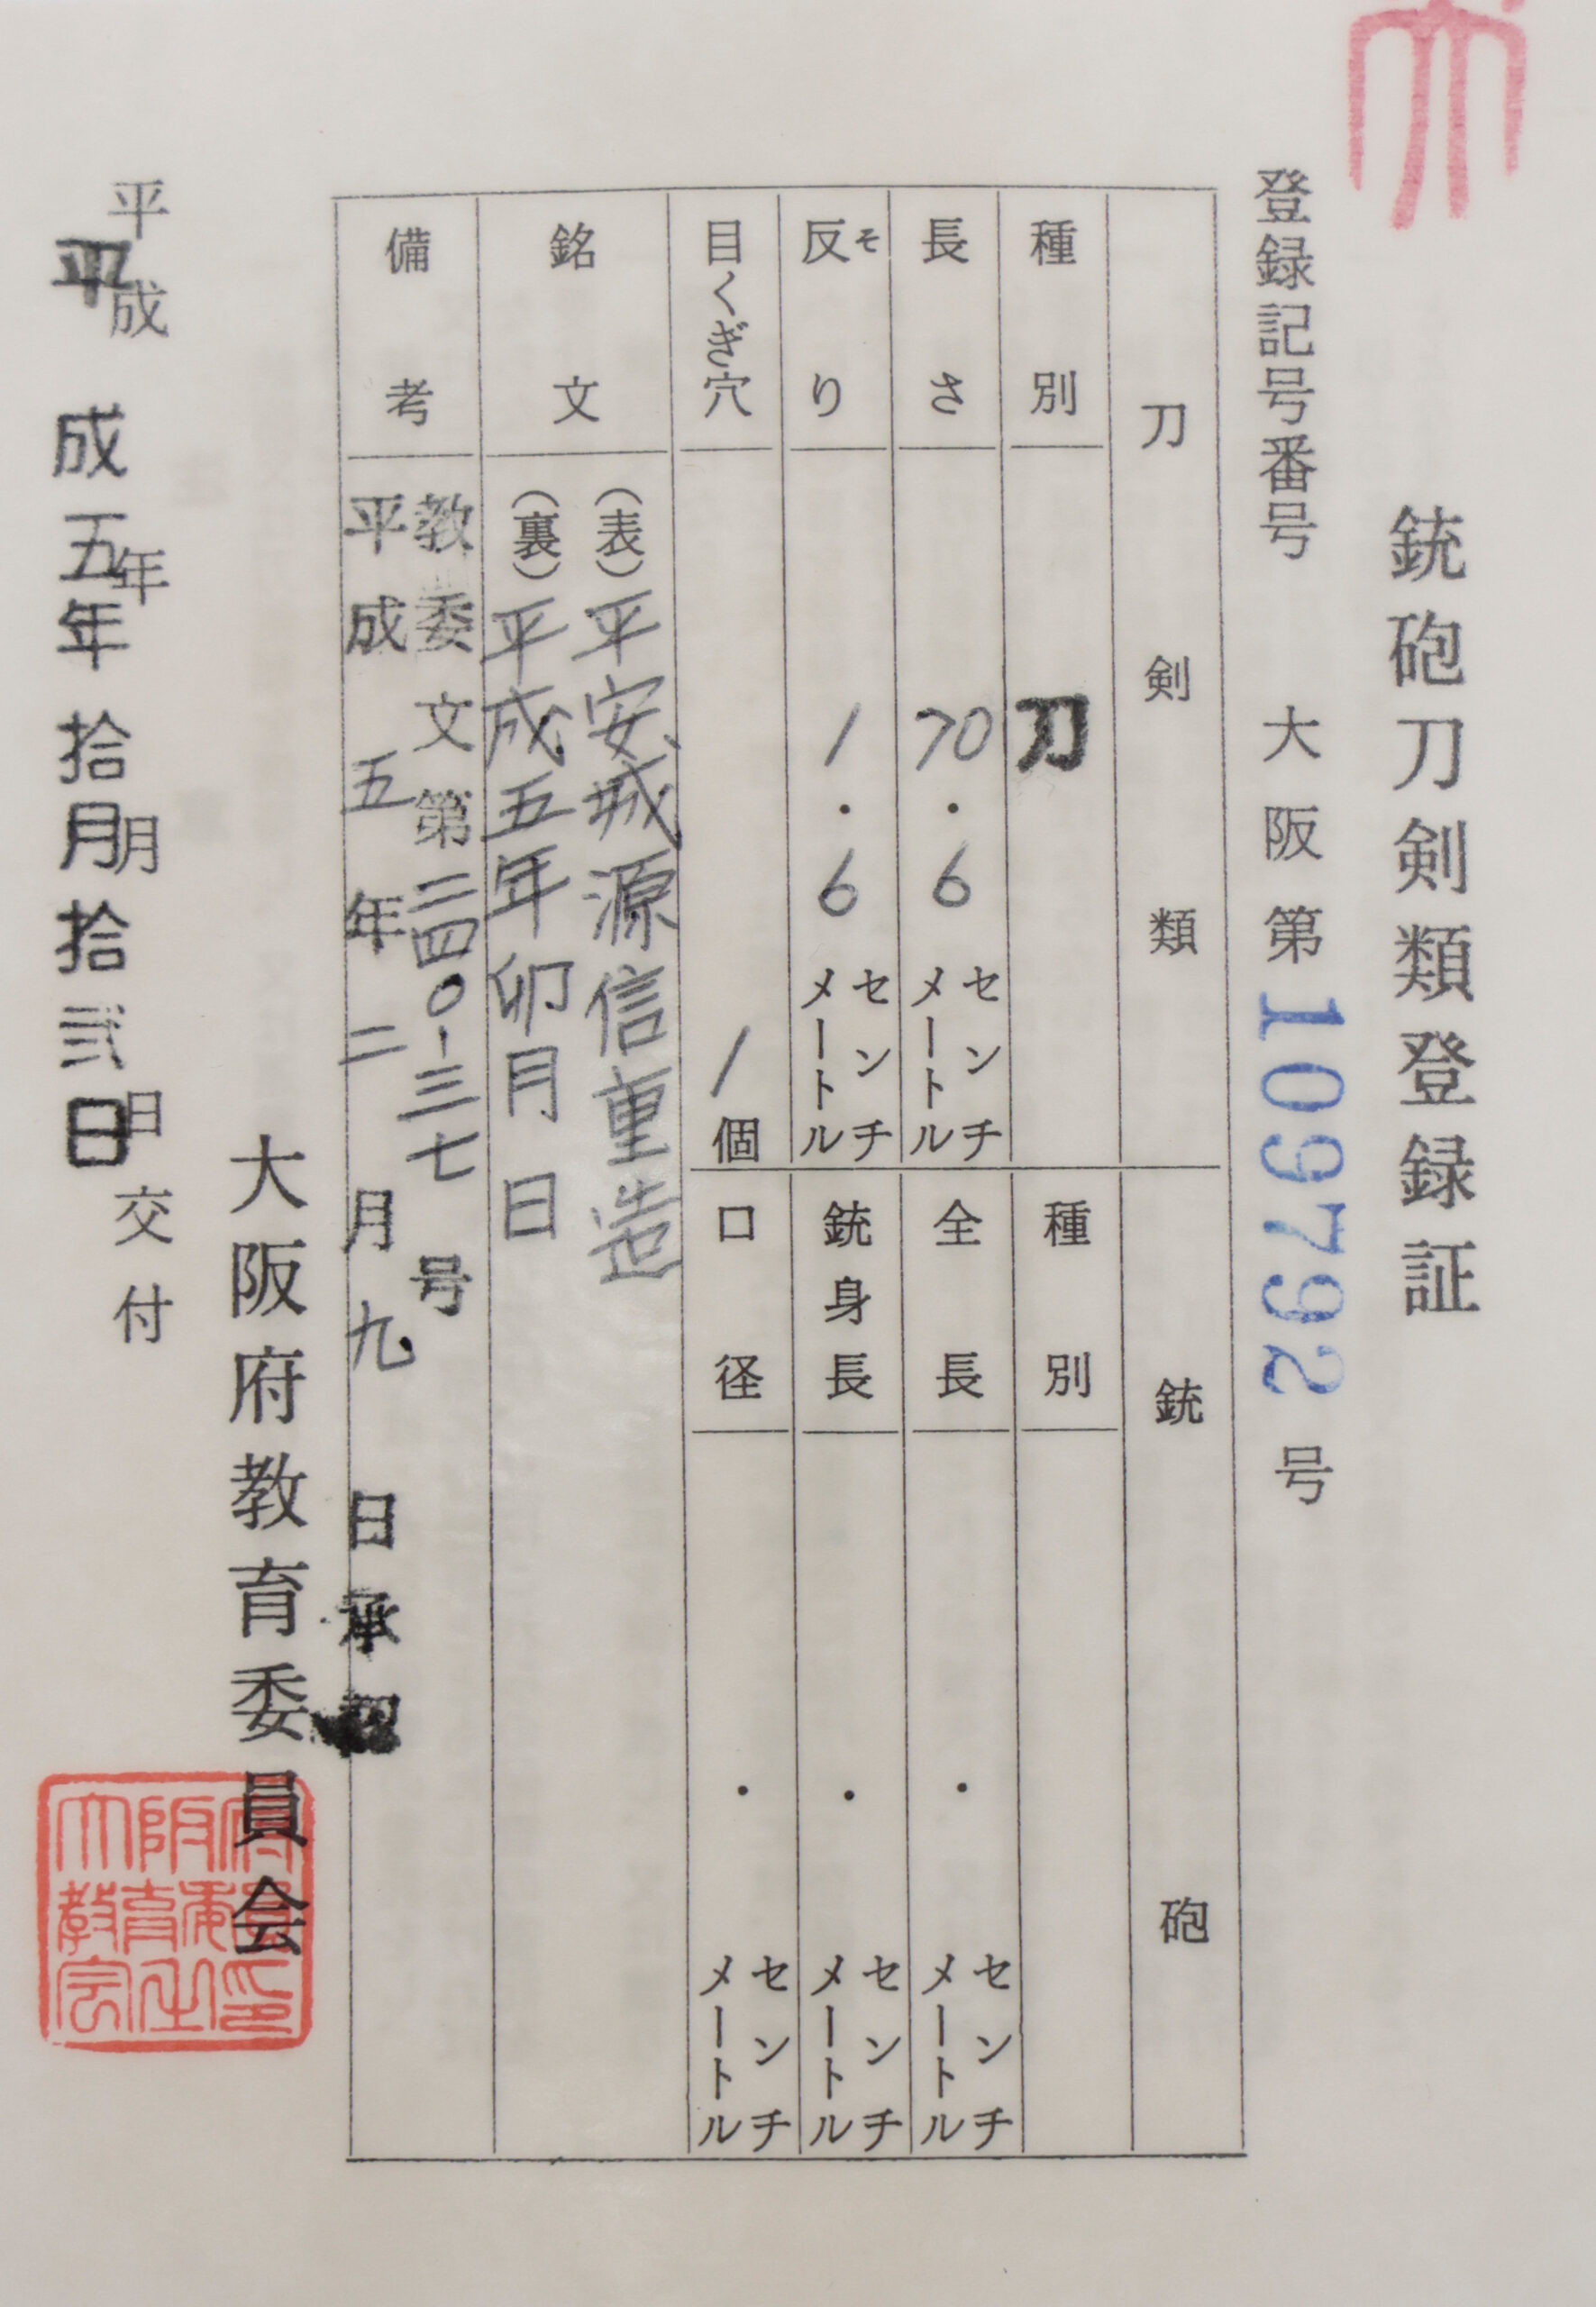 銃砲刀剣類登録証
登録記号番号 大阪第109792号
刀剣類
種別 刀
長さ 70.6 センチメートル
反り 1.6 センチメートル
そ
目くぎ穴 1個
銃砲
種別
全長 . センチメートル
銃身長 . センチメートル
口径 . センチメートル
銘文 (表)平安城源信重造
(裏)平成五年卯月日
備考 教委文第二四〇-三七号
平成五年二月九日承認
大阪府教育委員会
平成 年 月 日交付
平成五年拾月拾弐日
大阪府教育委員会之印